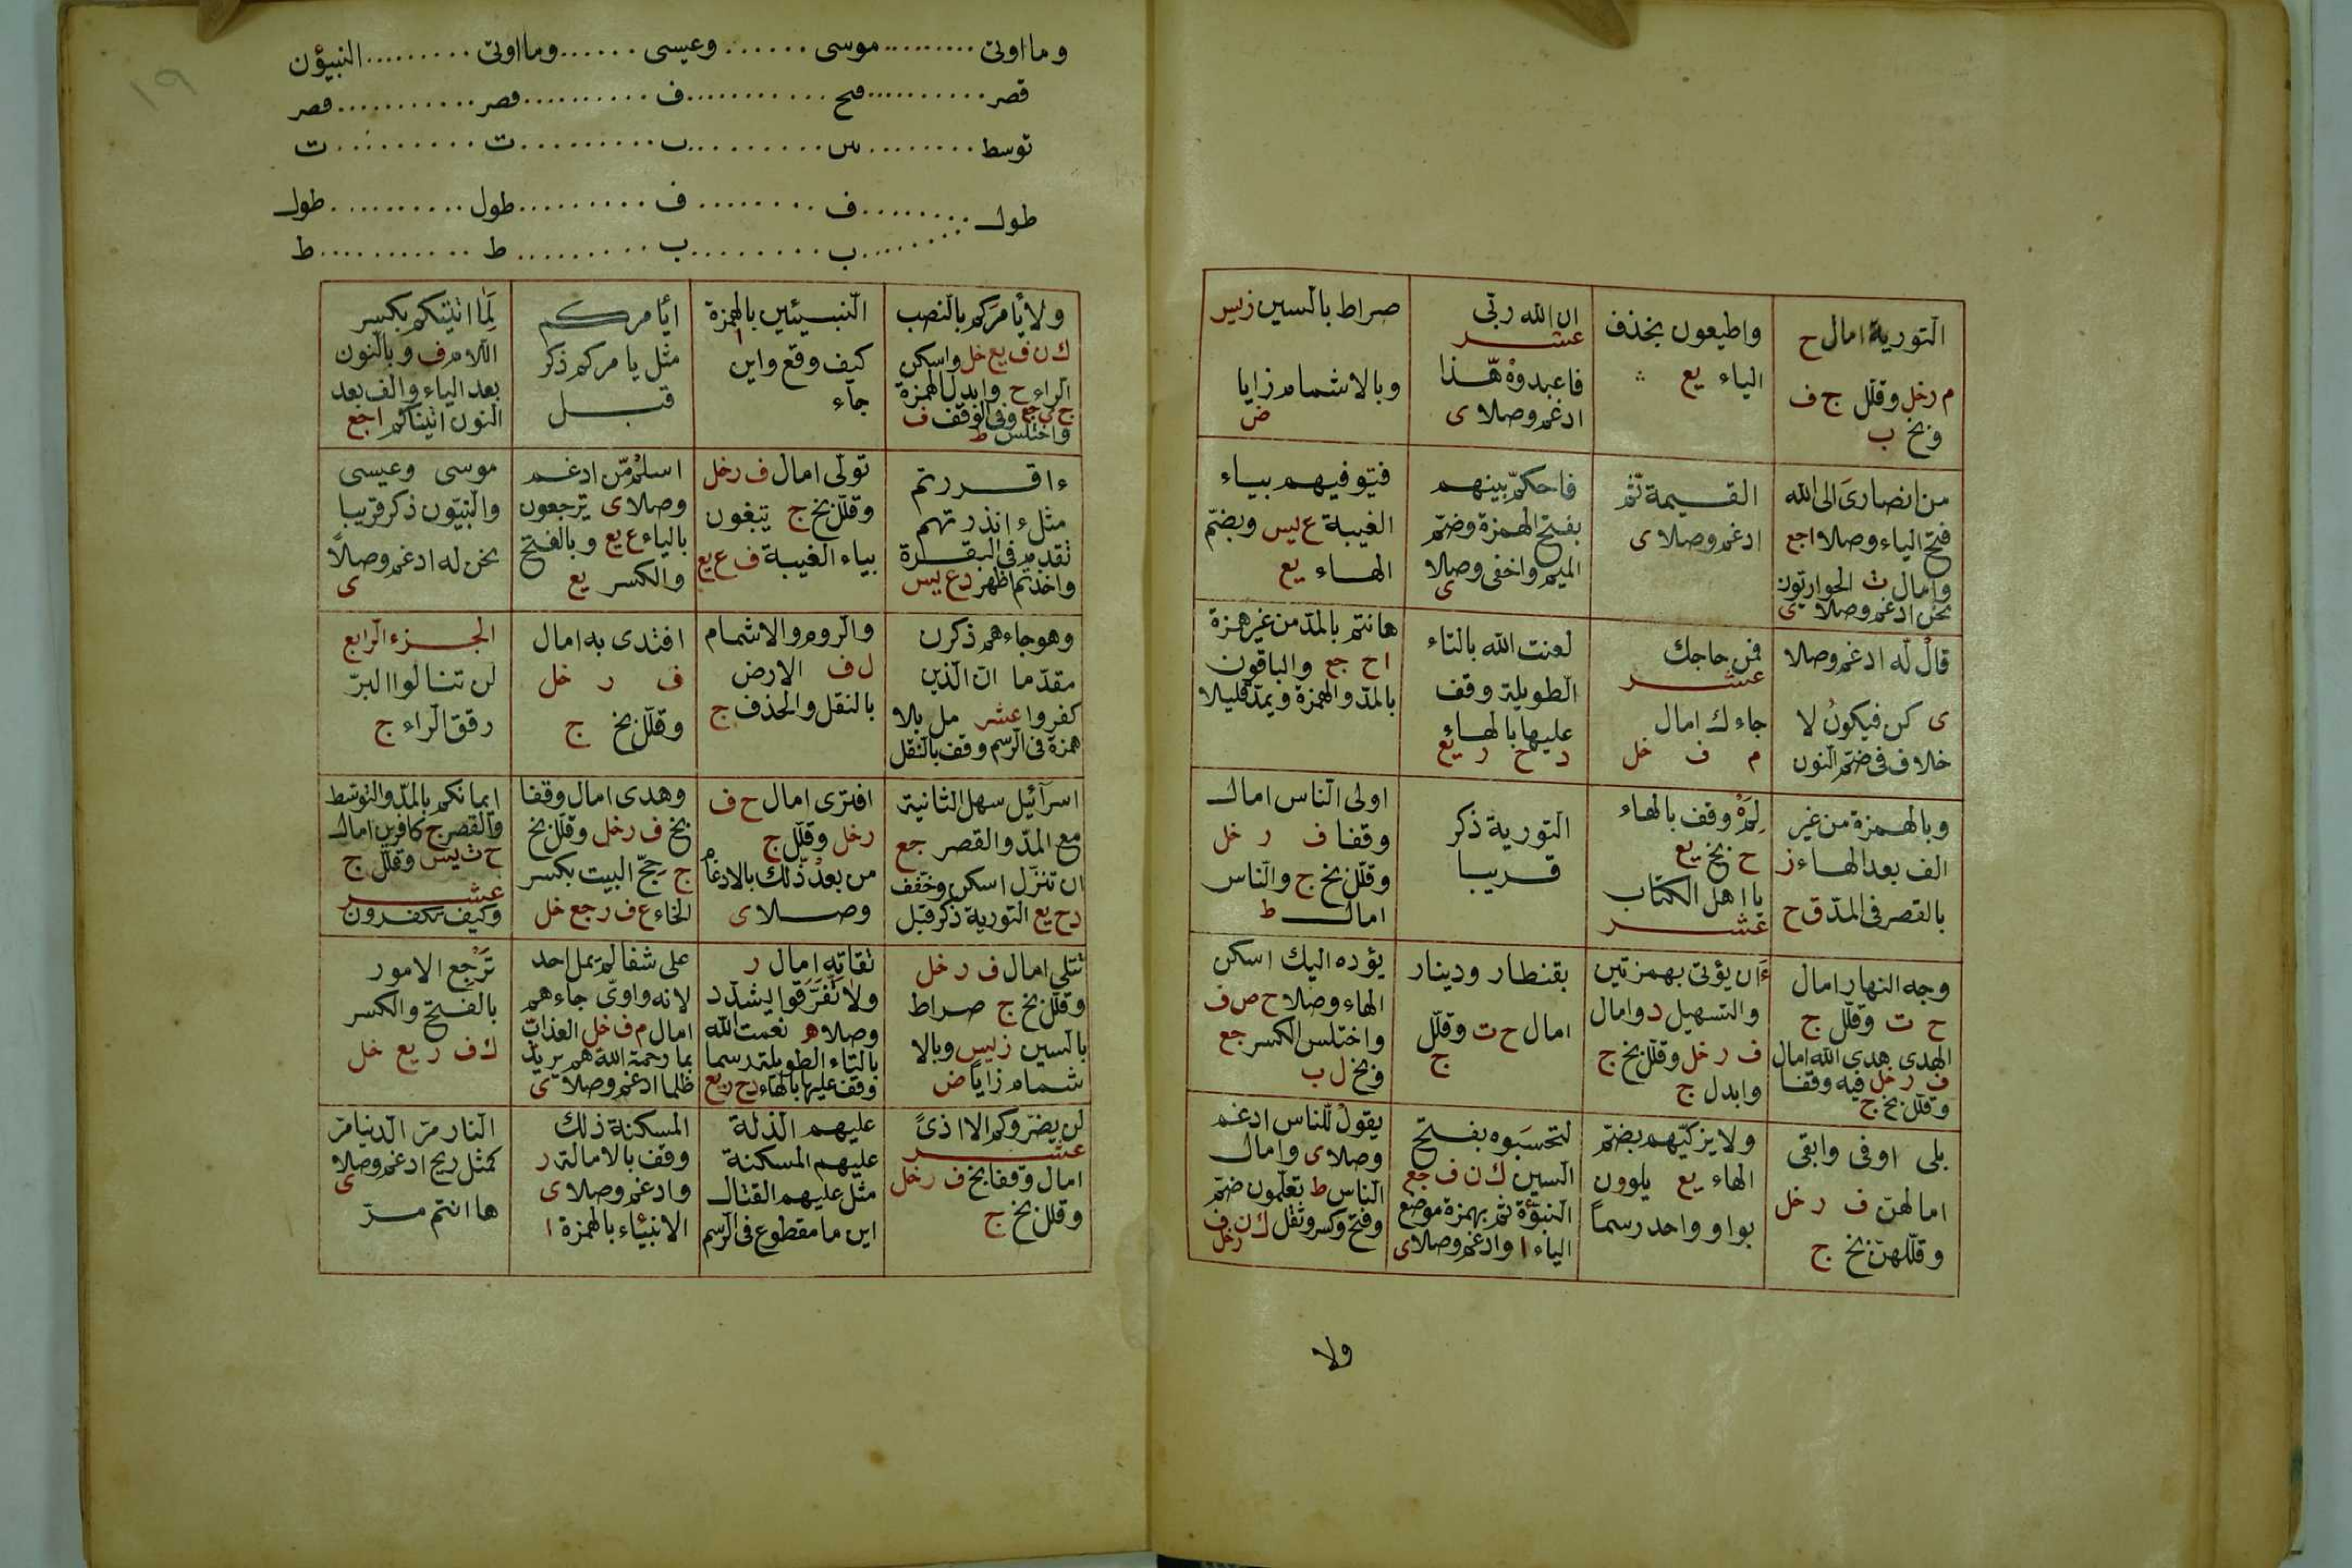 التورية امال ح
م رخل وقلل ج ف
وبخ ب
واطيعون بحذف
الياء يع
ان الله ربي
عشر
فاعبدوه هّذا
ادغم وصلا ى
صراط بالسين زيس
وبالاشمام زايا
ض
من انصارى الى الله
فتح الياء وصلا اجع
وامال ت الحواريون
نحن ادغم وصلا ى
القيمة ثّم
ادغم وصلا ى
فاحكم بينهم
بفتح الهمزة وضم
الميم واخفى وصلا
ى
فيوفيهم بياء
الغيبة ع ليس وبضم
الهاء يع
قال له ادغم وصلا
ى كن فيكون لا
خلاف فى ضم النون
فمن حاجك
عشر
جاءك امال
م ف خل
لعنت الله بالتاء
الطويلة وقف
عليها بالهاء
د ح ر يع
هانتم بالمد من غير همزة
اح جع والباقون
بالمد والهمزة ويمد قليلا
وبالهمزة من غير
الف بعد الهاء ز
بالقصر فى المد ق ح
لمه وقف بالهاء
ح بخ يع
يا اهل الكتاب
عشر
التورية ذكر
قريبا
اولى الناس امال
وقفا ف ر خل
وقلل بخ ج والناس
امال ط
وجه النهار امال
ح ت وقلل ج
الهدى هدى الله امال
ف ر خل فيه وقفا
وقلل بخ ج
ءان يؤتى بهمزتين
والتسهيل د وامال
ف ر خل وقلل بخ ج
وابدل ج
بقنطار ودينار
امال ح ت وقلل
ج
يؤده اليك اسكن
الهاء وصلا ح ص ف
واختلس الكسر جع
وبخ ل ب
بلى اوفى واتقى
امالهن ف ر خل
وقللهن بخ ج
ولا يزكيهم بضم
الهاء يع يلوون
بواو واحد رسماً
لتحسبوه بفتح
السين ك ن ف جع
النبؤة ثم بهمزة موضع
الياء ا وادغم وصلا ى
يقول للناس ادغم
وصلا ى وامال
الناس ط تعلمون ضم
وفتح وكسر وثقل ك ن ف
رخل
ولا
١٩
وما اوتى موسى وعيسى وما اوتى النبيؤن
قصر فتح ف قصر قصر
توسط س ب ت ت
طول ف ف طول طول
ب ب ط ط
ولا يأمركم بالنصب
ك ن ف يع خل واسكن
الراء ح وابدل الهمزة
ج ى جع وفى الوقف ف
واختلس ط
النبيئين بالهمزة
ا
كيف وقع واين
جاء
ايأمركم
مثل يامركم ذكر
قبل
لما اتيتكم بكسر
اللام ف وبالنون
بعد الياء والف بعد
النون اتيناكم اجع
ءاقررتم
مثل ءانذرتهم
تقدم فى البقرة
واخذتم اظهر دع ليس
تولى امال ف رخل
وقلل بخ ج يبغون
بياء الغيبة ف ع يع
اسلم مّن ادغم
وصلا ى يرجعون
بالياء ع يع وبالفتح
والكسر يع
موسى وعيسى
والنبيون ذكر قريبا
نحن له ادغم وصلاً
ى
وهو جاءهم ذكرن
مقدما ان الذين
كفروا عشر مل بلا
همزة فى الرسم وقف بالنقل
والروم والاشمام
ل ف الارض
بالنقل والحذف ج
افتدى به امال
ف ر خل
وقلل بخ ج
الجزء الرابع
لن تنالوا البر
رقق الراء ج
اسرآئيل سهل الثانية
مع المد والقصر جع
ان تنزل اسكن وخفف
دح يع التورية ذكر قبل
افترى امال ح ف
رخل وقلل ج
من بعد ذلك بالادغام
وصلا ى
وهدى امال وقفا
بخ ف رخل وقلل بخ
ج حج البيت بكسر
الحاء ع ف رجع خل
ايمانكم بالمد والتوسط
والقصر ج كافرين امال
ح ت يس وقلل ج
عشر
وكيف تكفرون
تتلى امال ف ر خل
وقلل بخ ج صراط
بالسين زيس وبالا
شمام زاياً ض
تقاته امال ر
ولا تفرقوا يشدد
وصلا ه نعمت الله
بالتاء الطويلة رسما
وقف عليها بالهاء دح ريع
على شفا لم يمل احد
لانه واوى جاءهم
امال م ف خل العذاب
بما رحمة الله هم يريد
ظلما ادغم وصلا ى
ترجع الامور
بالفتح والكسر
ك ف ر يع خل
لن يضروكم الا اذىً
عشر
امال وقفا بخ ف رخل
وقلل بخ ج
عليهم الذلة
عليهم المسكنة
مثل عليهم القتال
اين ما مقطوع فى الرسم
المسكنة ذلك
وقف بالامالة ر
وادغم وصلا ى
الانبئاء بالهمزة ا
النار مّ الدنيا مّ
كمثل ريح ادغم وصلا
ى
ها انتم مرّ